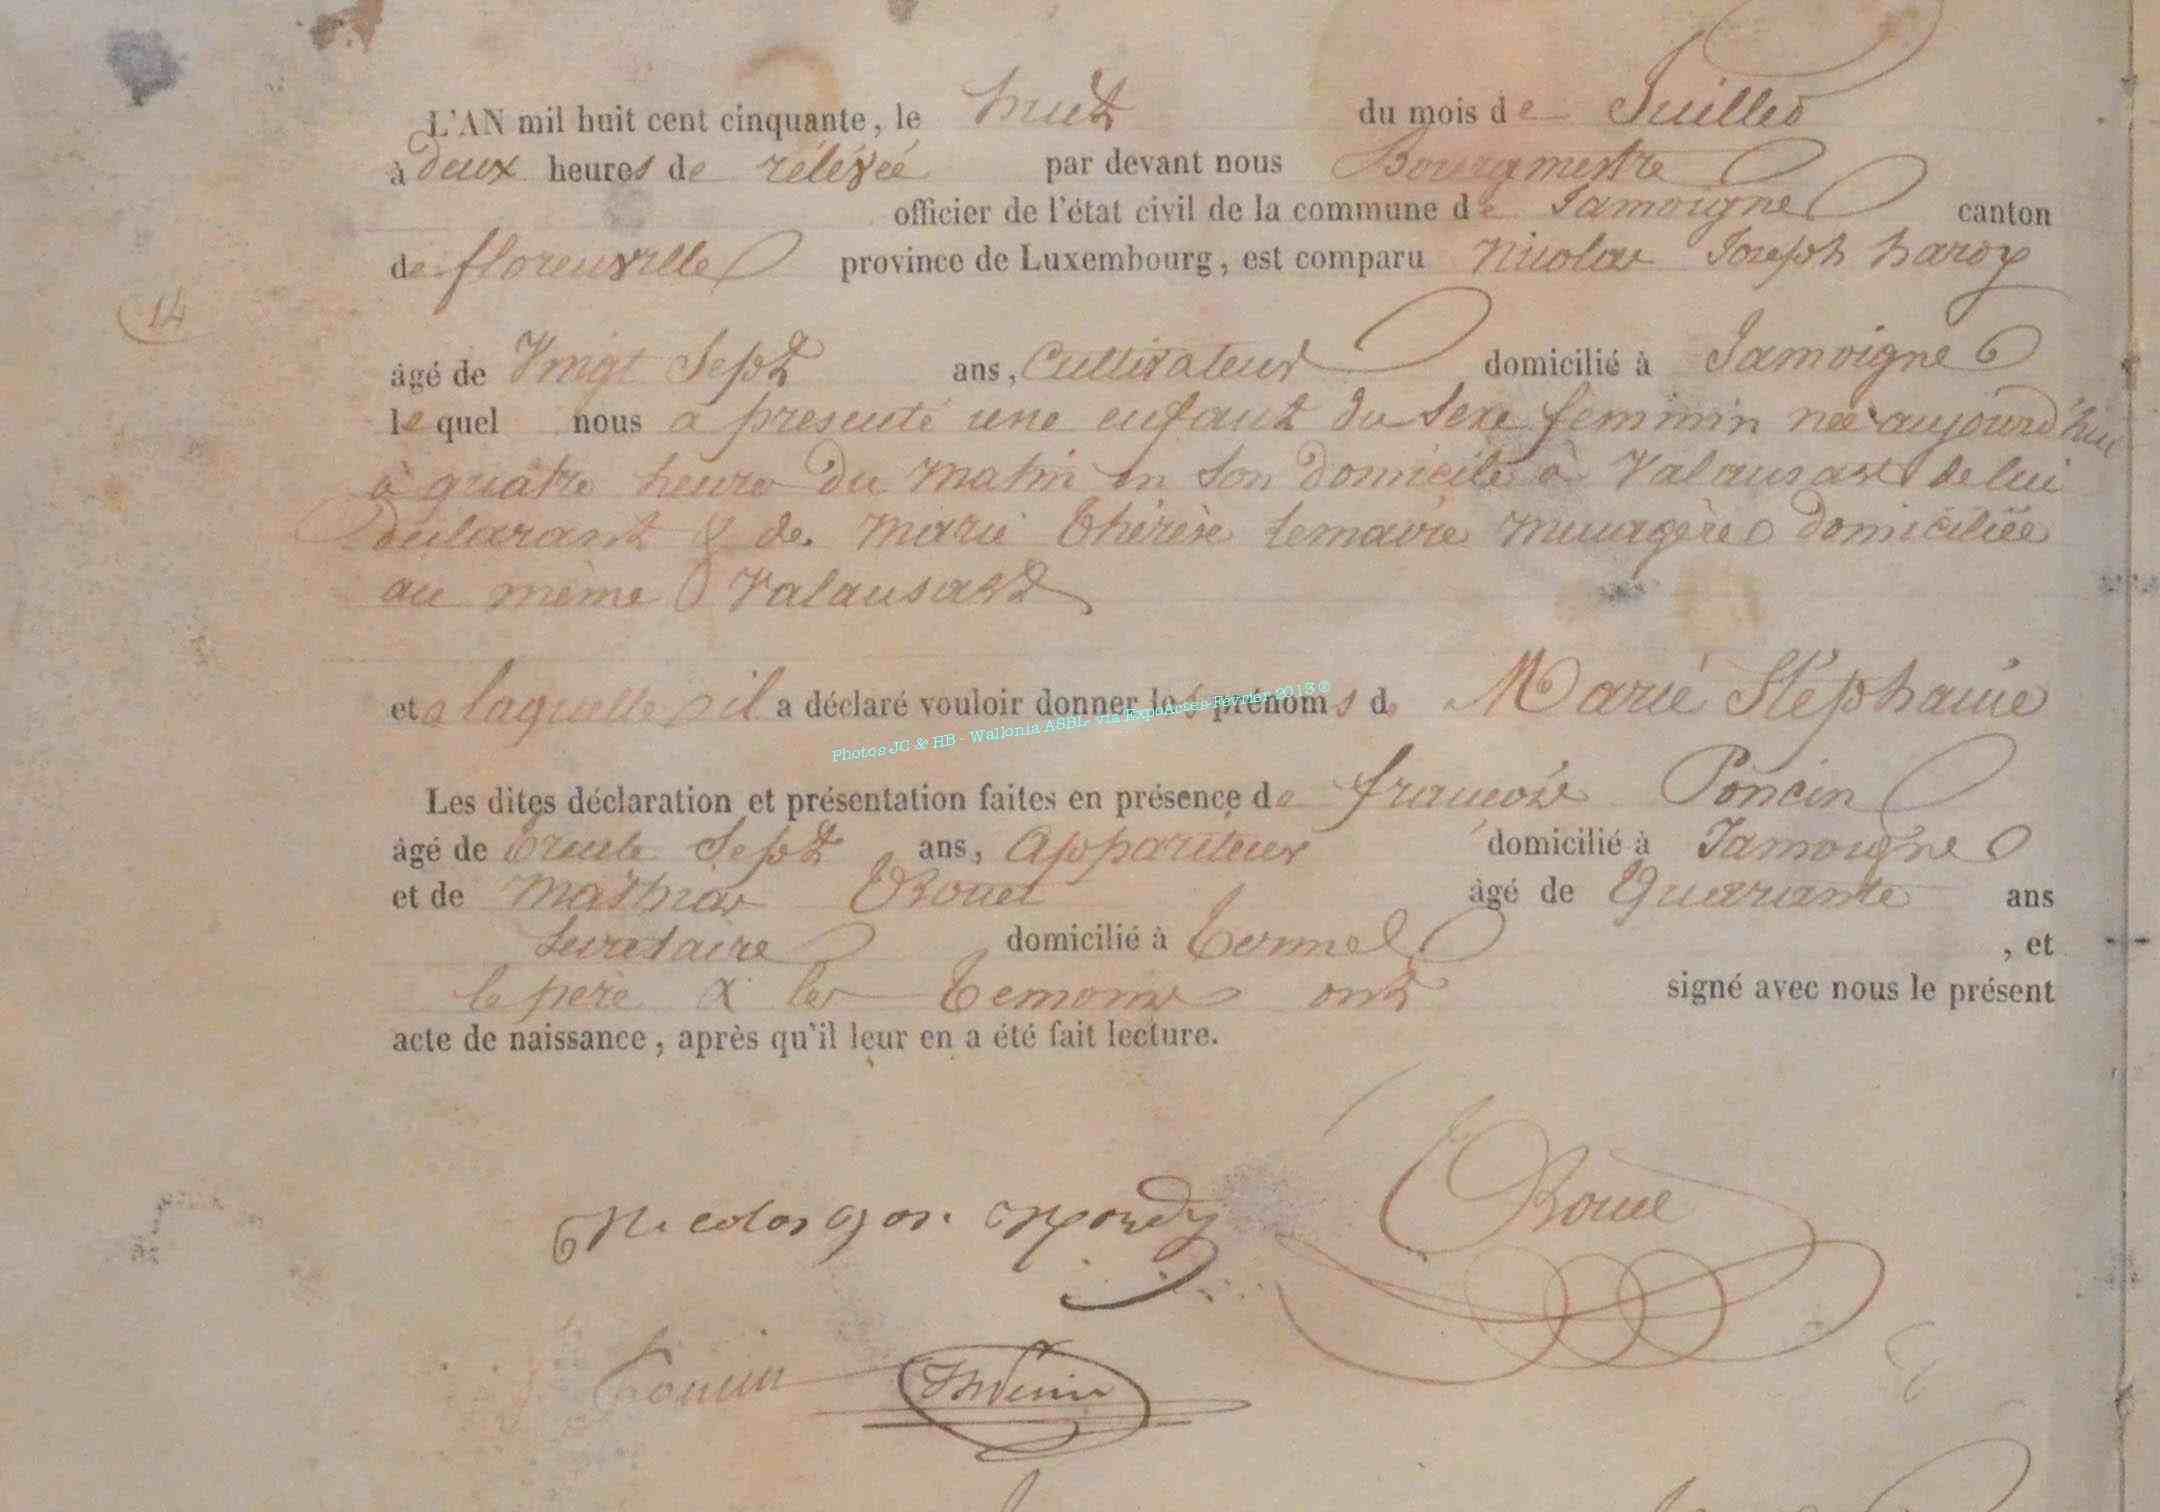 L'AN mil huit cent cinquante, le huit du mois de Juillet
à deux heures de rélévéé par devant nous Bourgmestre
officier de l'état civil de la commune de Jamoigne canton
de florenville province de Luxembourg, est comparu Nicolas Joseph hardy
14
âgé de Vingt Sept ans, Cultivateur domicilié à Jamoigne
le quel nous a presenté une enfant du Sexe feminin née aujourd'hui
à quatre heure du matin en Son domicile à Valansart de lui
declarant & de Marie thérèse Lemaire menagère domiciliée
au même Valansart
et a laquelle il a déclaré vouloir donner les prénoms de Marie Stéphanie
Photos JC & HB - Wallonia ASBL via ExpoActes-Février 2013 ©
Les dites déclaration et présentation faites en présence de françois Poncin
âgé de trente Sept ans, Appariteur domicilié à Jamoigne
et de Mathias Rouet âgé de Quarante ans
Secretaire domicilié à termel , et
le père & les temoins ont signé avec nous le présent
acte de naissance, après qu'il leur en a été fait lecture.
Nicolas jos. hardy
Poncin